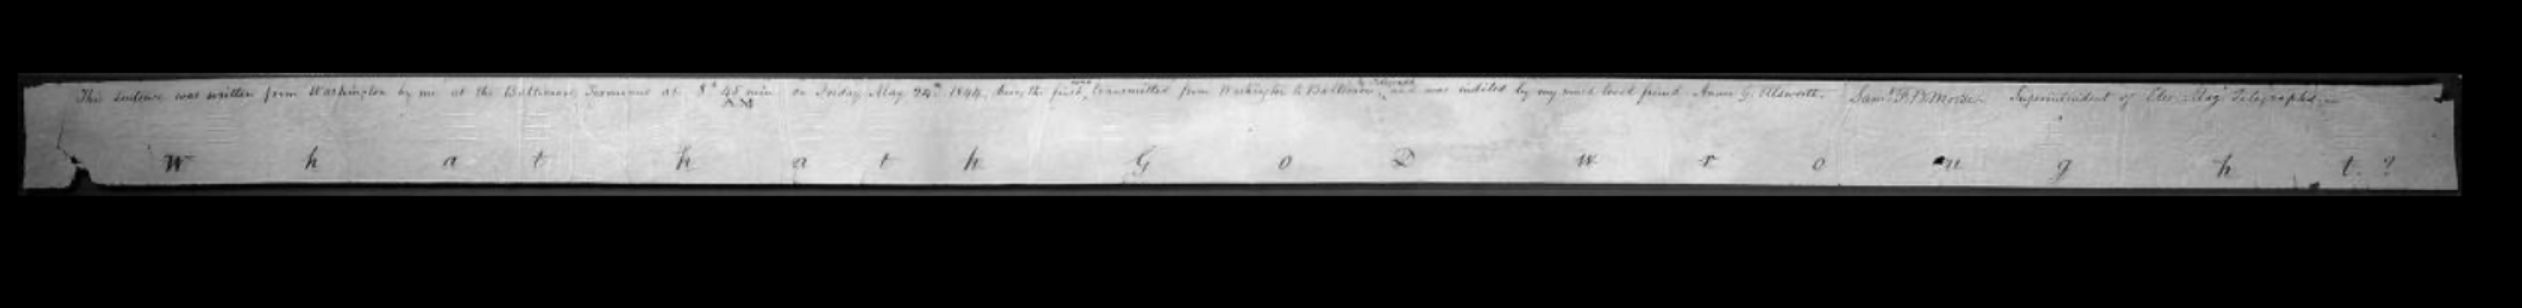 This sentence was written from Washington by me at the Baltimore Terminus at 8h 45 min A.M. on Friday May 24th 1844, being the first ever transmitted from Washington to Baltimore, by Telegraph and was indited by my much loved friend Annie G. Ellsworth. Sam.l F. B. Morse. Superintendent of Elec. Mag. Telegraphs.
W h a t h a t h G o D w r o u g h t. ?